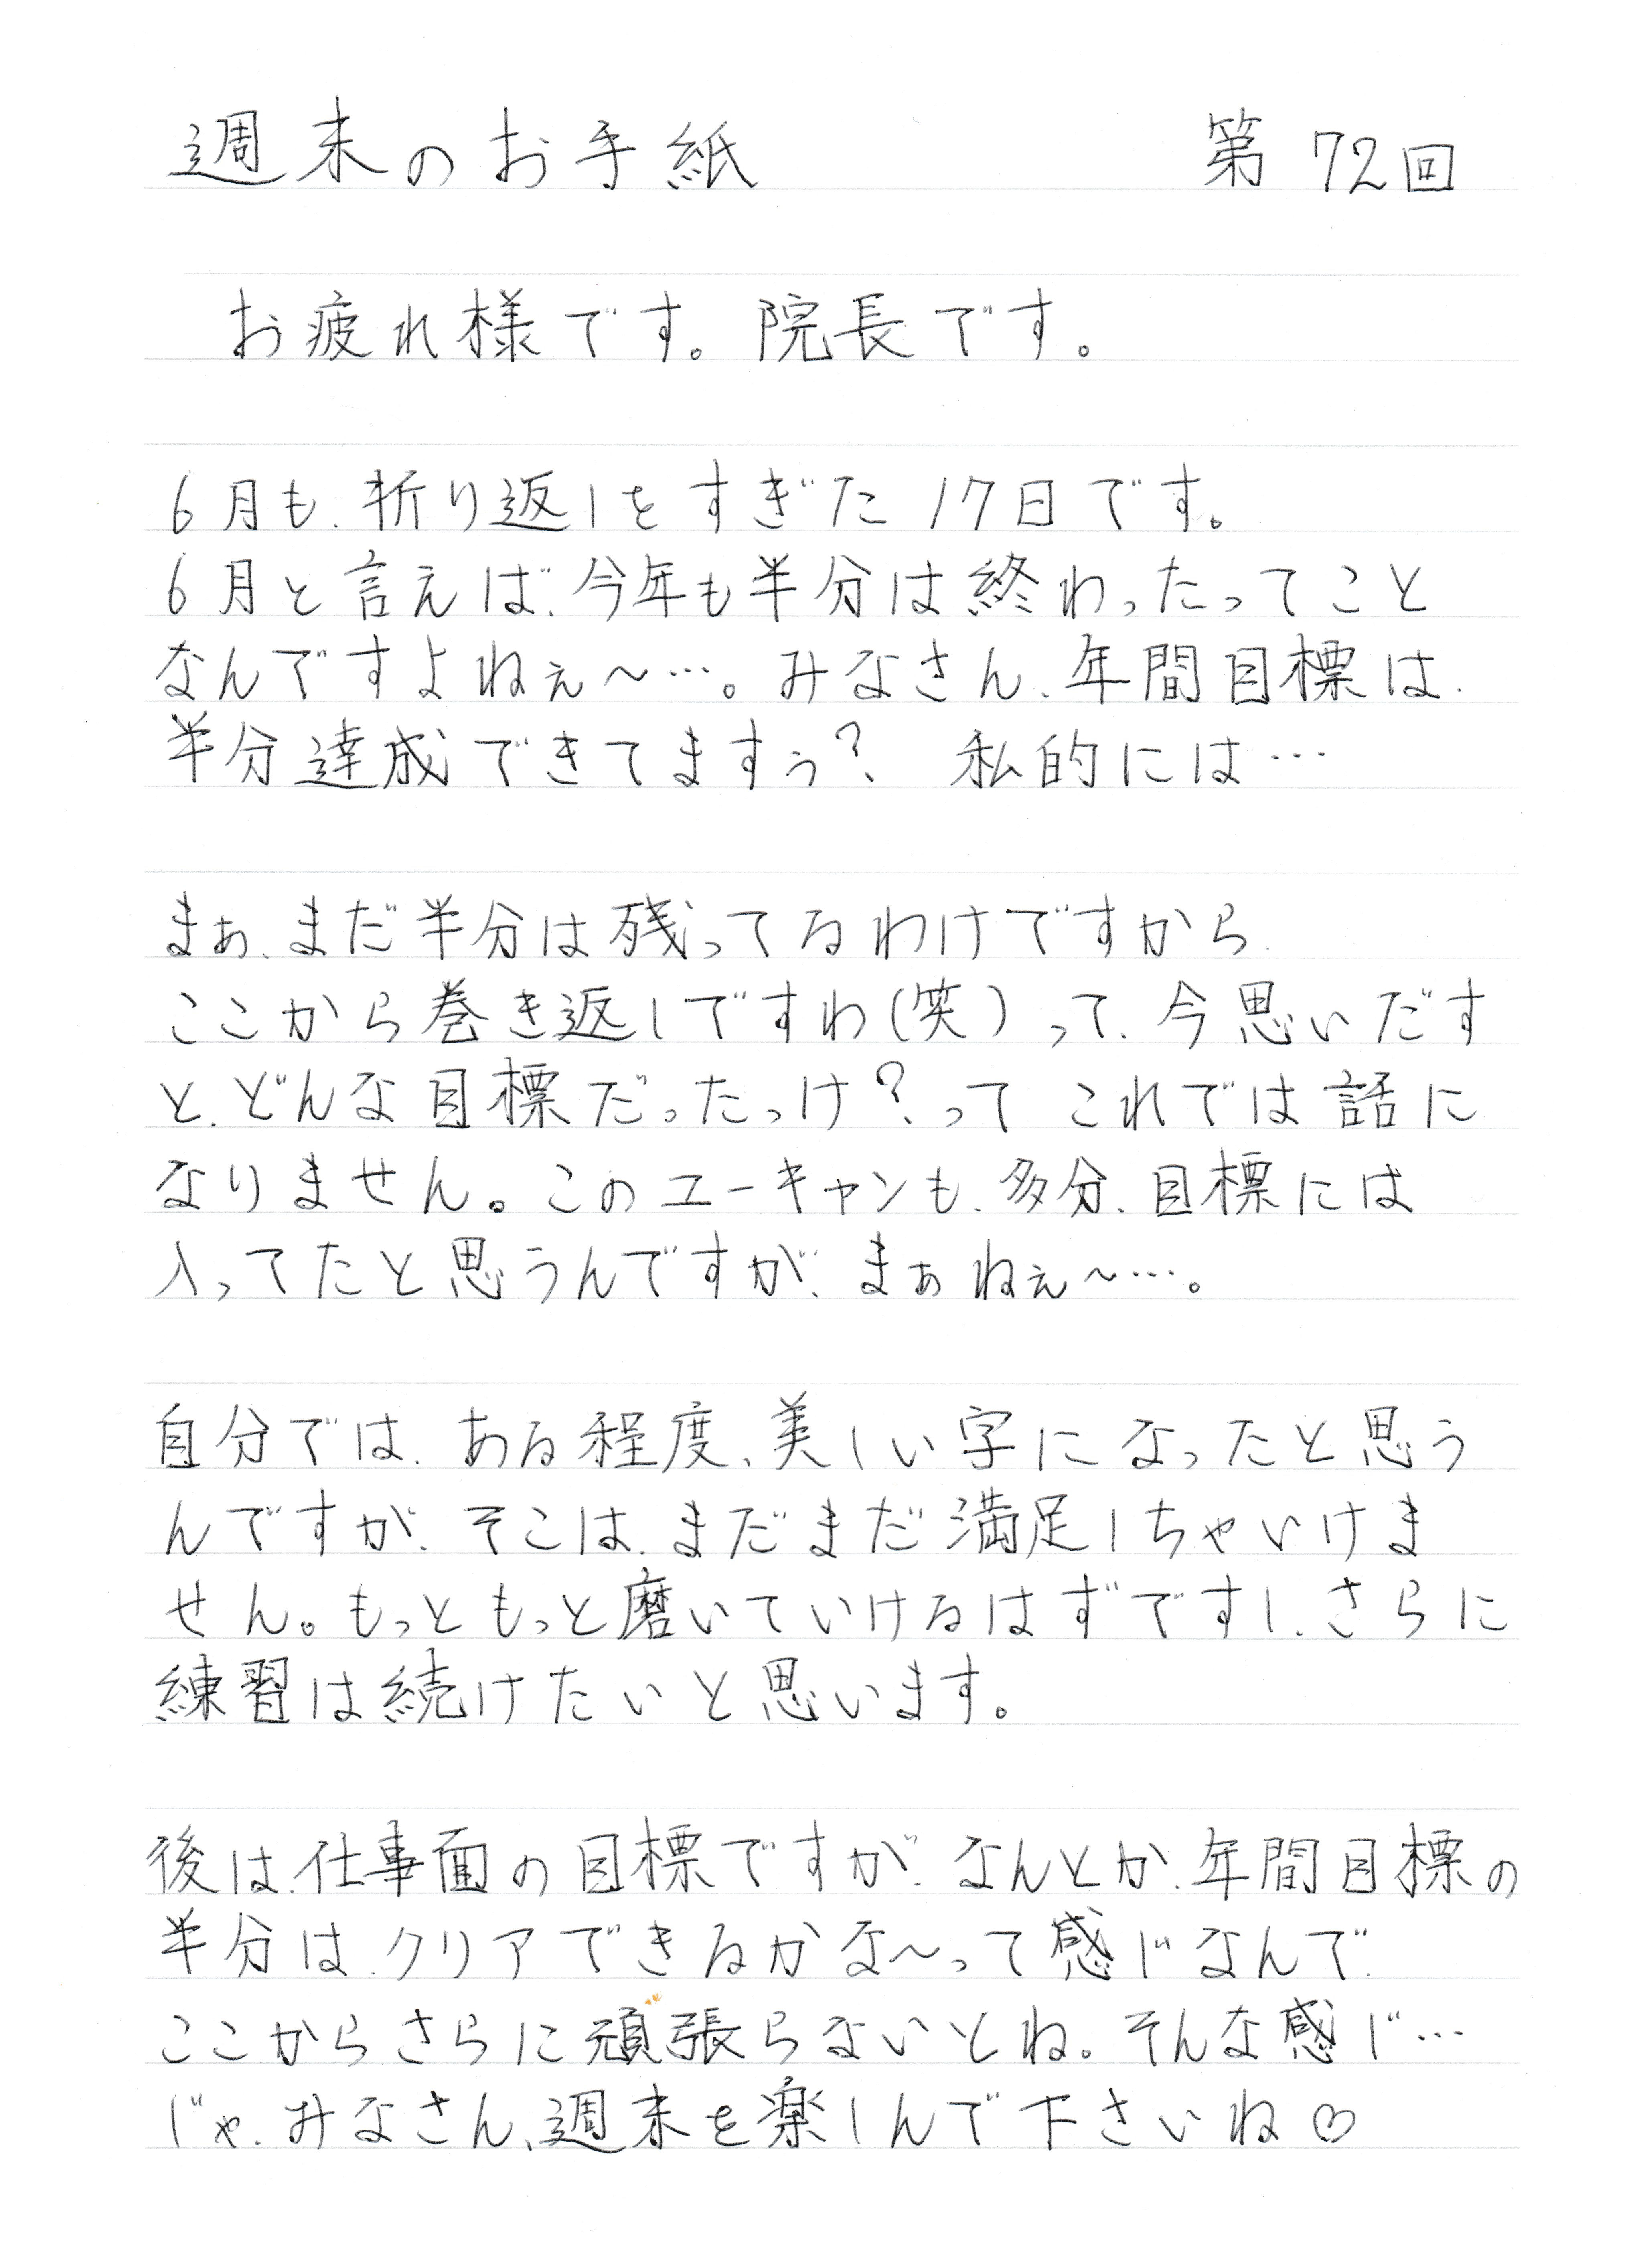 週末のお手紙 第72回
お疲れ様です。院長です。
6月も、折り返しをすぎた17日です。
6月と言えば、今年も半分は終わったってこと
なんですよねぇ〜…。みなさん、年間目標は、
半分達成できてますぅ? 私的には…
まぁ、まだ半分は残ってるわけですから、
ここから巻き返しですわ(笑)って、今思いだす
と、どんな目標だったっけ?って これでは話に
なりません。このユーキャンも、多分、目標には
入ってたと思うんですが、まぁねぇ〜…。
自分では、ある程度、美しい字になったと思う
んですが、そこは、まだまだ満足しちゃいけま
せん。もっともっと磨いていけるはずですし、さらに
練習は続けたいと思います。
後は、仕事面の目標ですが、なんとか、年間目標の
半分は、クリアできるかな〜って感じなんで、
ここからさらに頑張らないとね。そんな感じ…
じゃ、みなさん、週末を楽しんで下さいね♡